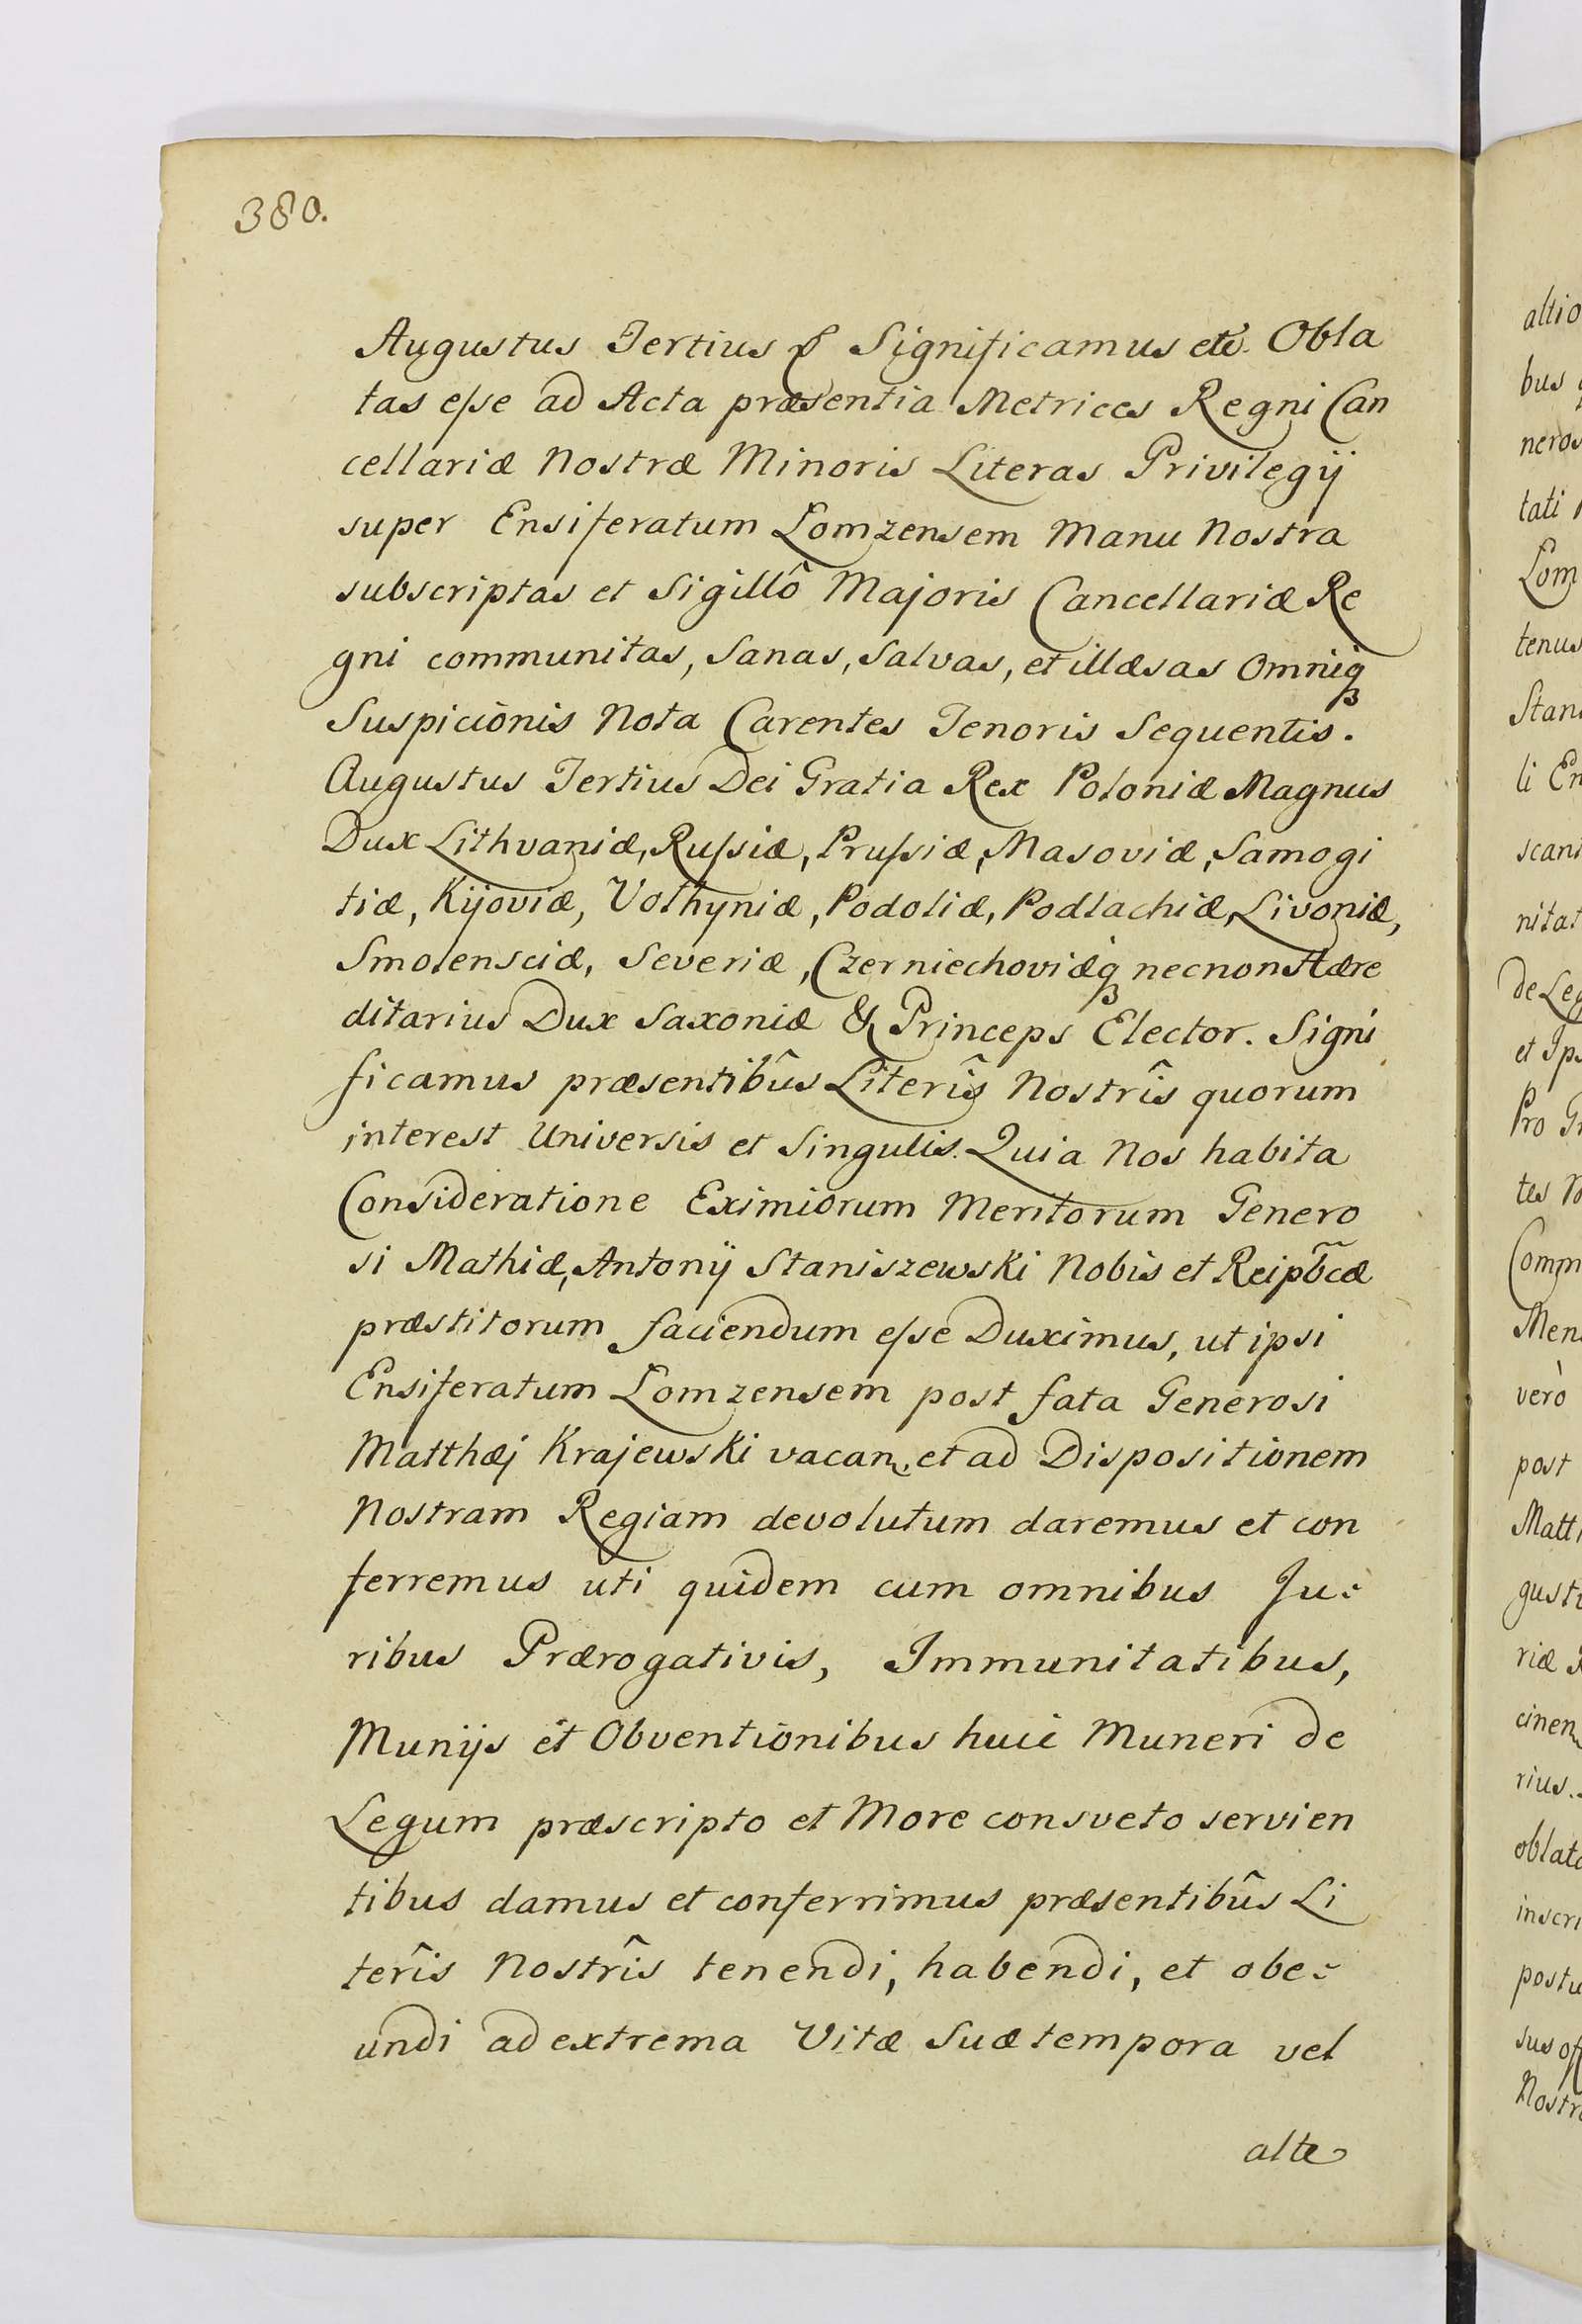 380.
Augustus Tertius & Significamus etc. Obla
tas esse ad Acta præsentia Metrices Regni Can
cellariæ Nostræ Minoris Literas Privilegij
super Ensiferatum Lomzensem Manu Nostra
subscriptas et Sigillô Majoris Cancellariæ Re
gni communitas, Sanas, Salvas, et illæsas Omniq
Suspicionis Nota Carentes Tenoris Sequentis.
Augustus Tertius Dei Gratia Rex Poloniæ Magnus
Dux Lithvaniæ, Russiæ, Prussiæ, Masoviæ, Samogi
tiæ, Kijoviæ, Volhyniæ, Podoliæ, Podlachiæ, Livoniæ,
Smolensciæ, Severiæ, Czerniechoviæq necnon Hære
ditarius Dux Saxoniæ & Princeps Elector. Signi
ficamus præsentibûs Literîs Nostrîs quorum
interest Universis et Singulis. Quia Nos habita
Consideratione Eximiorum Meritorum Genero
si Mathiæ, Antonij Staniszewski Nobis et Reipb̃cæ
præstitorum faciendum esse Duximus, ut ipsi
Ensiferatum Lomzensem post fata Generosi
Matthæj Krajewski vacan. et ad Dispositionem
Nostram Regiam devolutum daremus et con
ferremus uti quidem cum omnibus Ju=
ribus Prærogativis, Immunitatibus,
Munijs et Obventionibus huic Muneri de
Legum præscripto et More consveto servien
tibus damus et conferrimus præsentibûs Li
terîs Nostrîs tenendi, habendi, et obe=
undi ad extrema Vitæ Suæ tempora vel
alte
altio
bus
neros
tati
Lom
tenus
Stan
li En
scani
nitat
de Leg
et Ips
Pro Gr
tes N
Comm
Men
verò
post
Matt
gusti
riæ
cinen
rius.
oblata
inscri
postu
sus off
Nostr